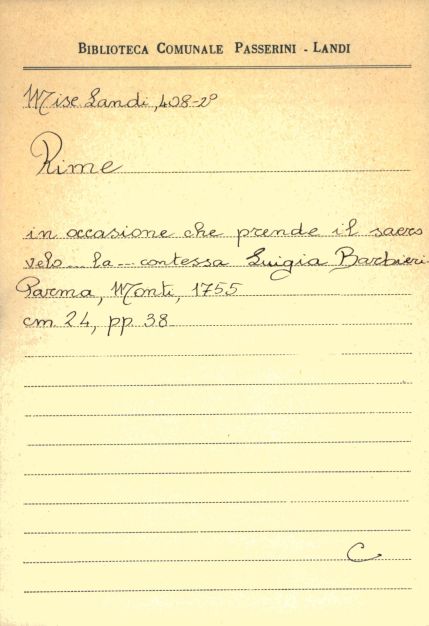 BIBLIOTECA COMUNALE PASSERINI - LANDI
Misc Landi, 408-2º
Rime
in occasione che prende il sacro
velo ... la ... contessa Luigia Barbieri
Parma, Monti, 1755
cm 24, pp 38
C